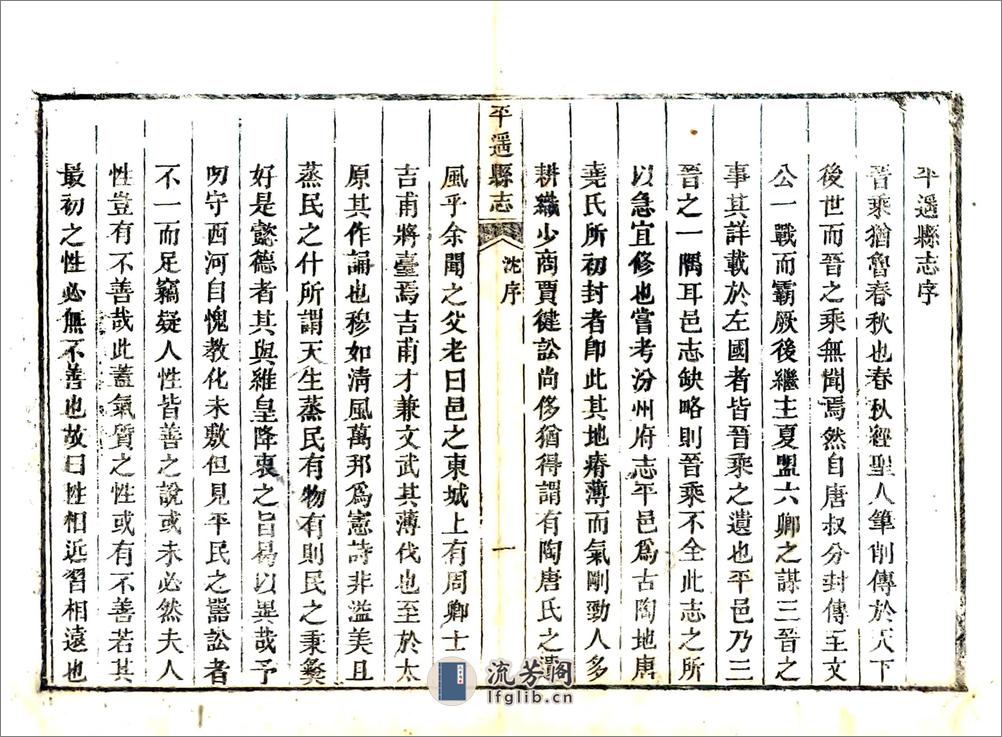 平遥縣志序
晉乘猶魯春秋也春秋經聖人筆削傳於天下
後世而晉之乘無聞焉然自唐叔分封傳至文
公一戰而霸厥後繼主夏盟六卿之謀三晉之
事其詳載於左國者皆晉乘之遺也平邑乃三
晉之一隅耳邑志缺略則晉乘不全此志之所
以急宜修也嘗考汾州府志平邑爲古陶地唐
堯氏所初封者即此其地瘠薄而氣剛勁人多
耕織少商賈健訟尚侈猶得謂有陶唐氏之遺
平遥縣志
沈序
一
風乎余聞之父老曰邑之東城上有周卿士
吉甫將臺焉吉甫才兼文武其薄伐也至於太
原其作誦也穆如淸風萬邦爲憲詩非溢美且
蒸民之什所謂天生蒸民有物有則民之秉彜
好是懿德者其與維皇降衷之旨曷以異哉予
守西河自愧教化未敷但見平民之嚚訟者
不一而足竊疑人性皆善之說或未必然夫人
性豈有不善哉此蓋氣質之性或有不善若其
最初之性必無不善也故曰性相近習相遠也
流芳閣
lfglib.cn